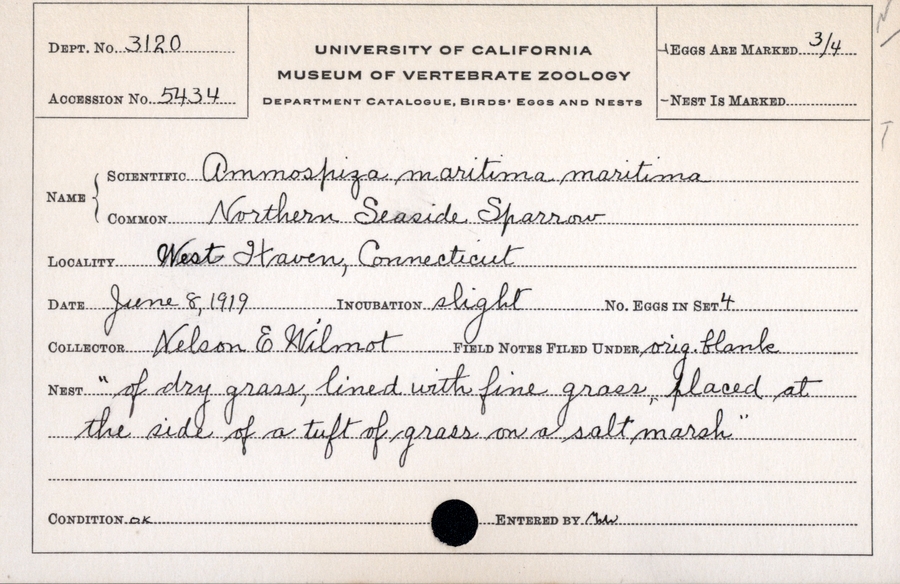 DEPT. NO. 3120
ACCESSION NO. 5434
UNIVERSITY OF CALIFORNIA
MUSEUM OF VERTEBRATE ZOOLOGY
DEPARTMENT CATALOGUE, BIRDS' EGGS AND NESTS
EGGS ARE MARKED 3/4
NEST IS MARKED
NAME
SCIENTIFIC Ammospiza maritima maritima
COMMON Northern Seaside Sparrow
LOCALITY West Haven, Connecticut
DATE June 8, 1919 INCUBATION slight NO. EGGS IN SET 4
COLLECTOR Nelson E Wilmot FIELD NOTES FILED UNDER orig. blank
NEST "of dry grass, lined with fine grass, placed at
the side of a tuft of grass on a salt marsh"
CONDITION OK ENTERED BY